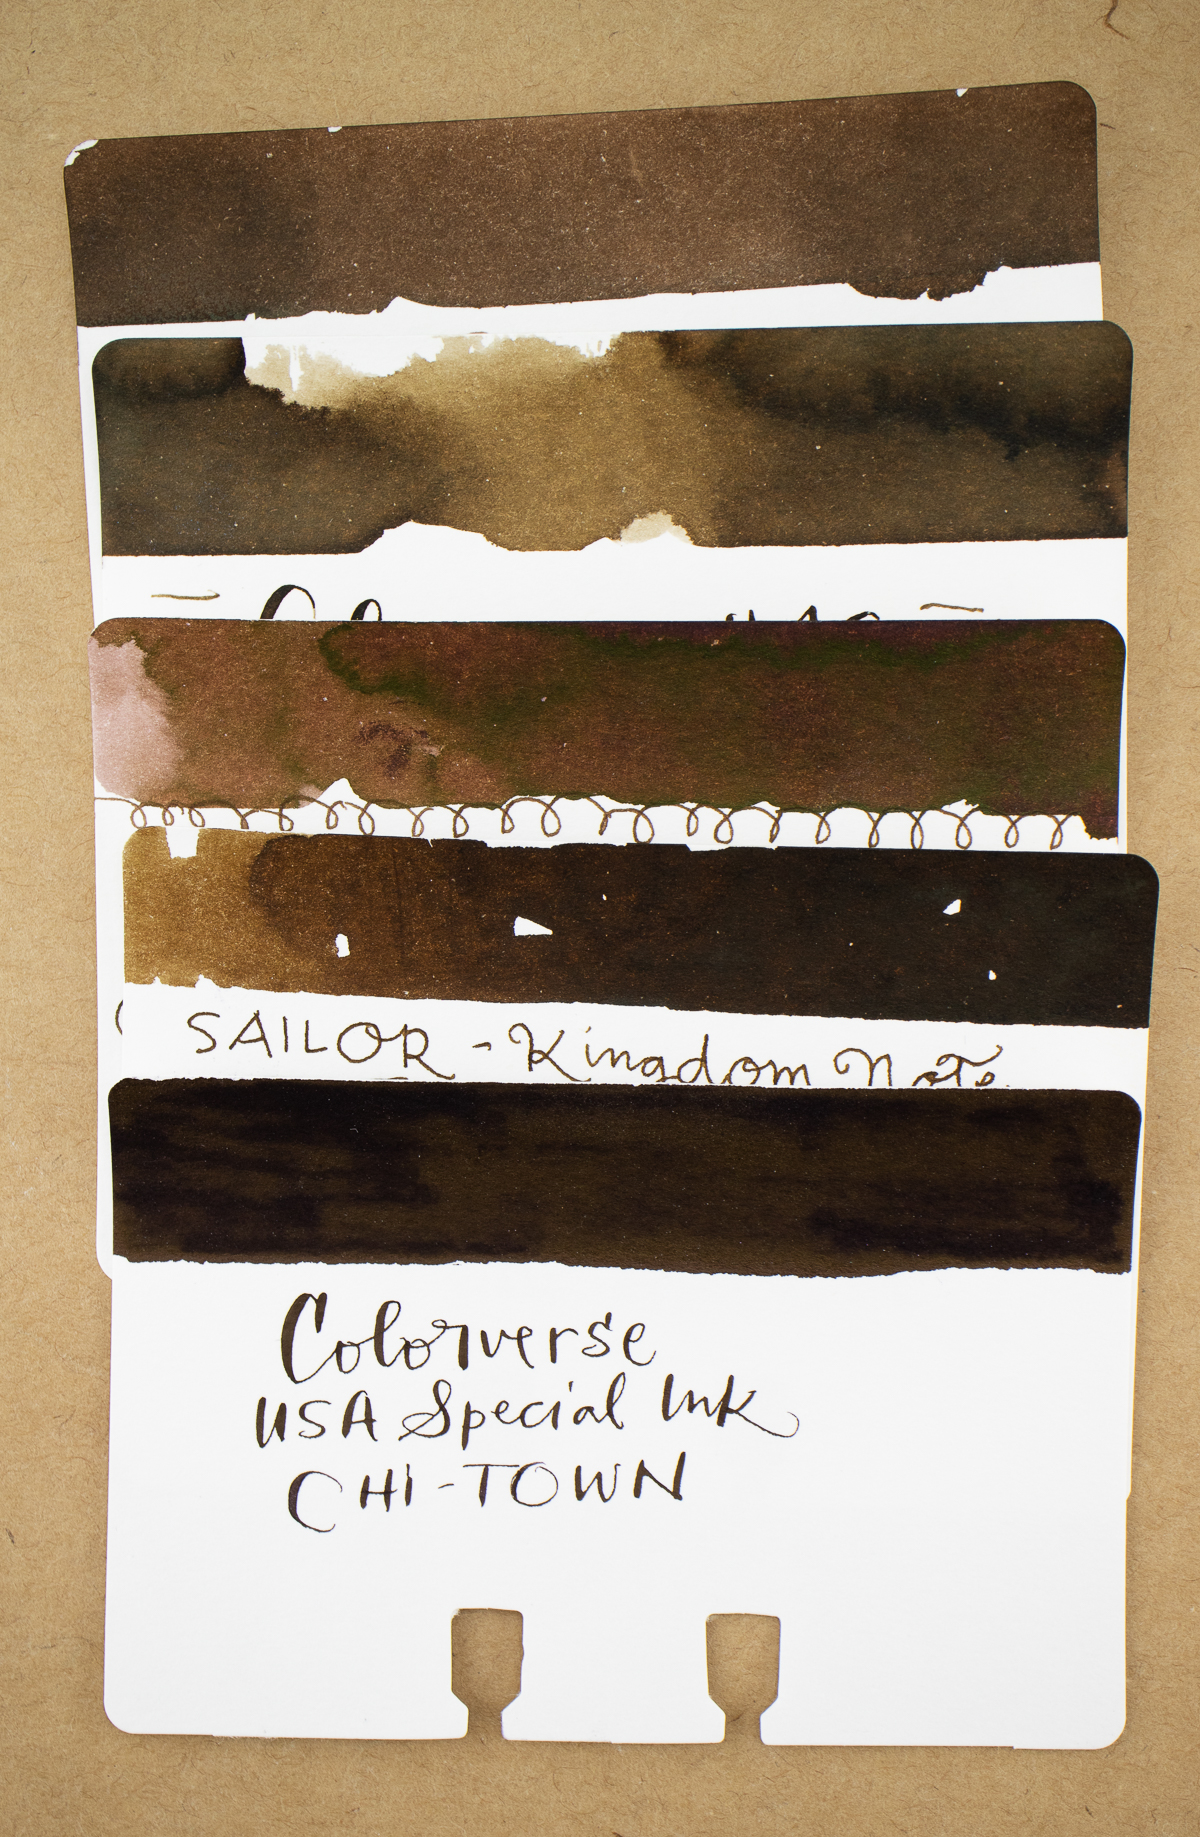 SAILOR - Kingdom Note
Colorverse
USA Special Ink
CHI-TOWN